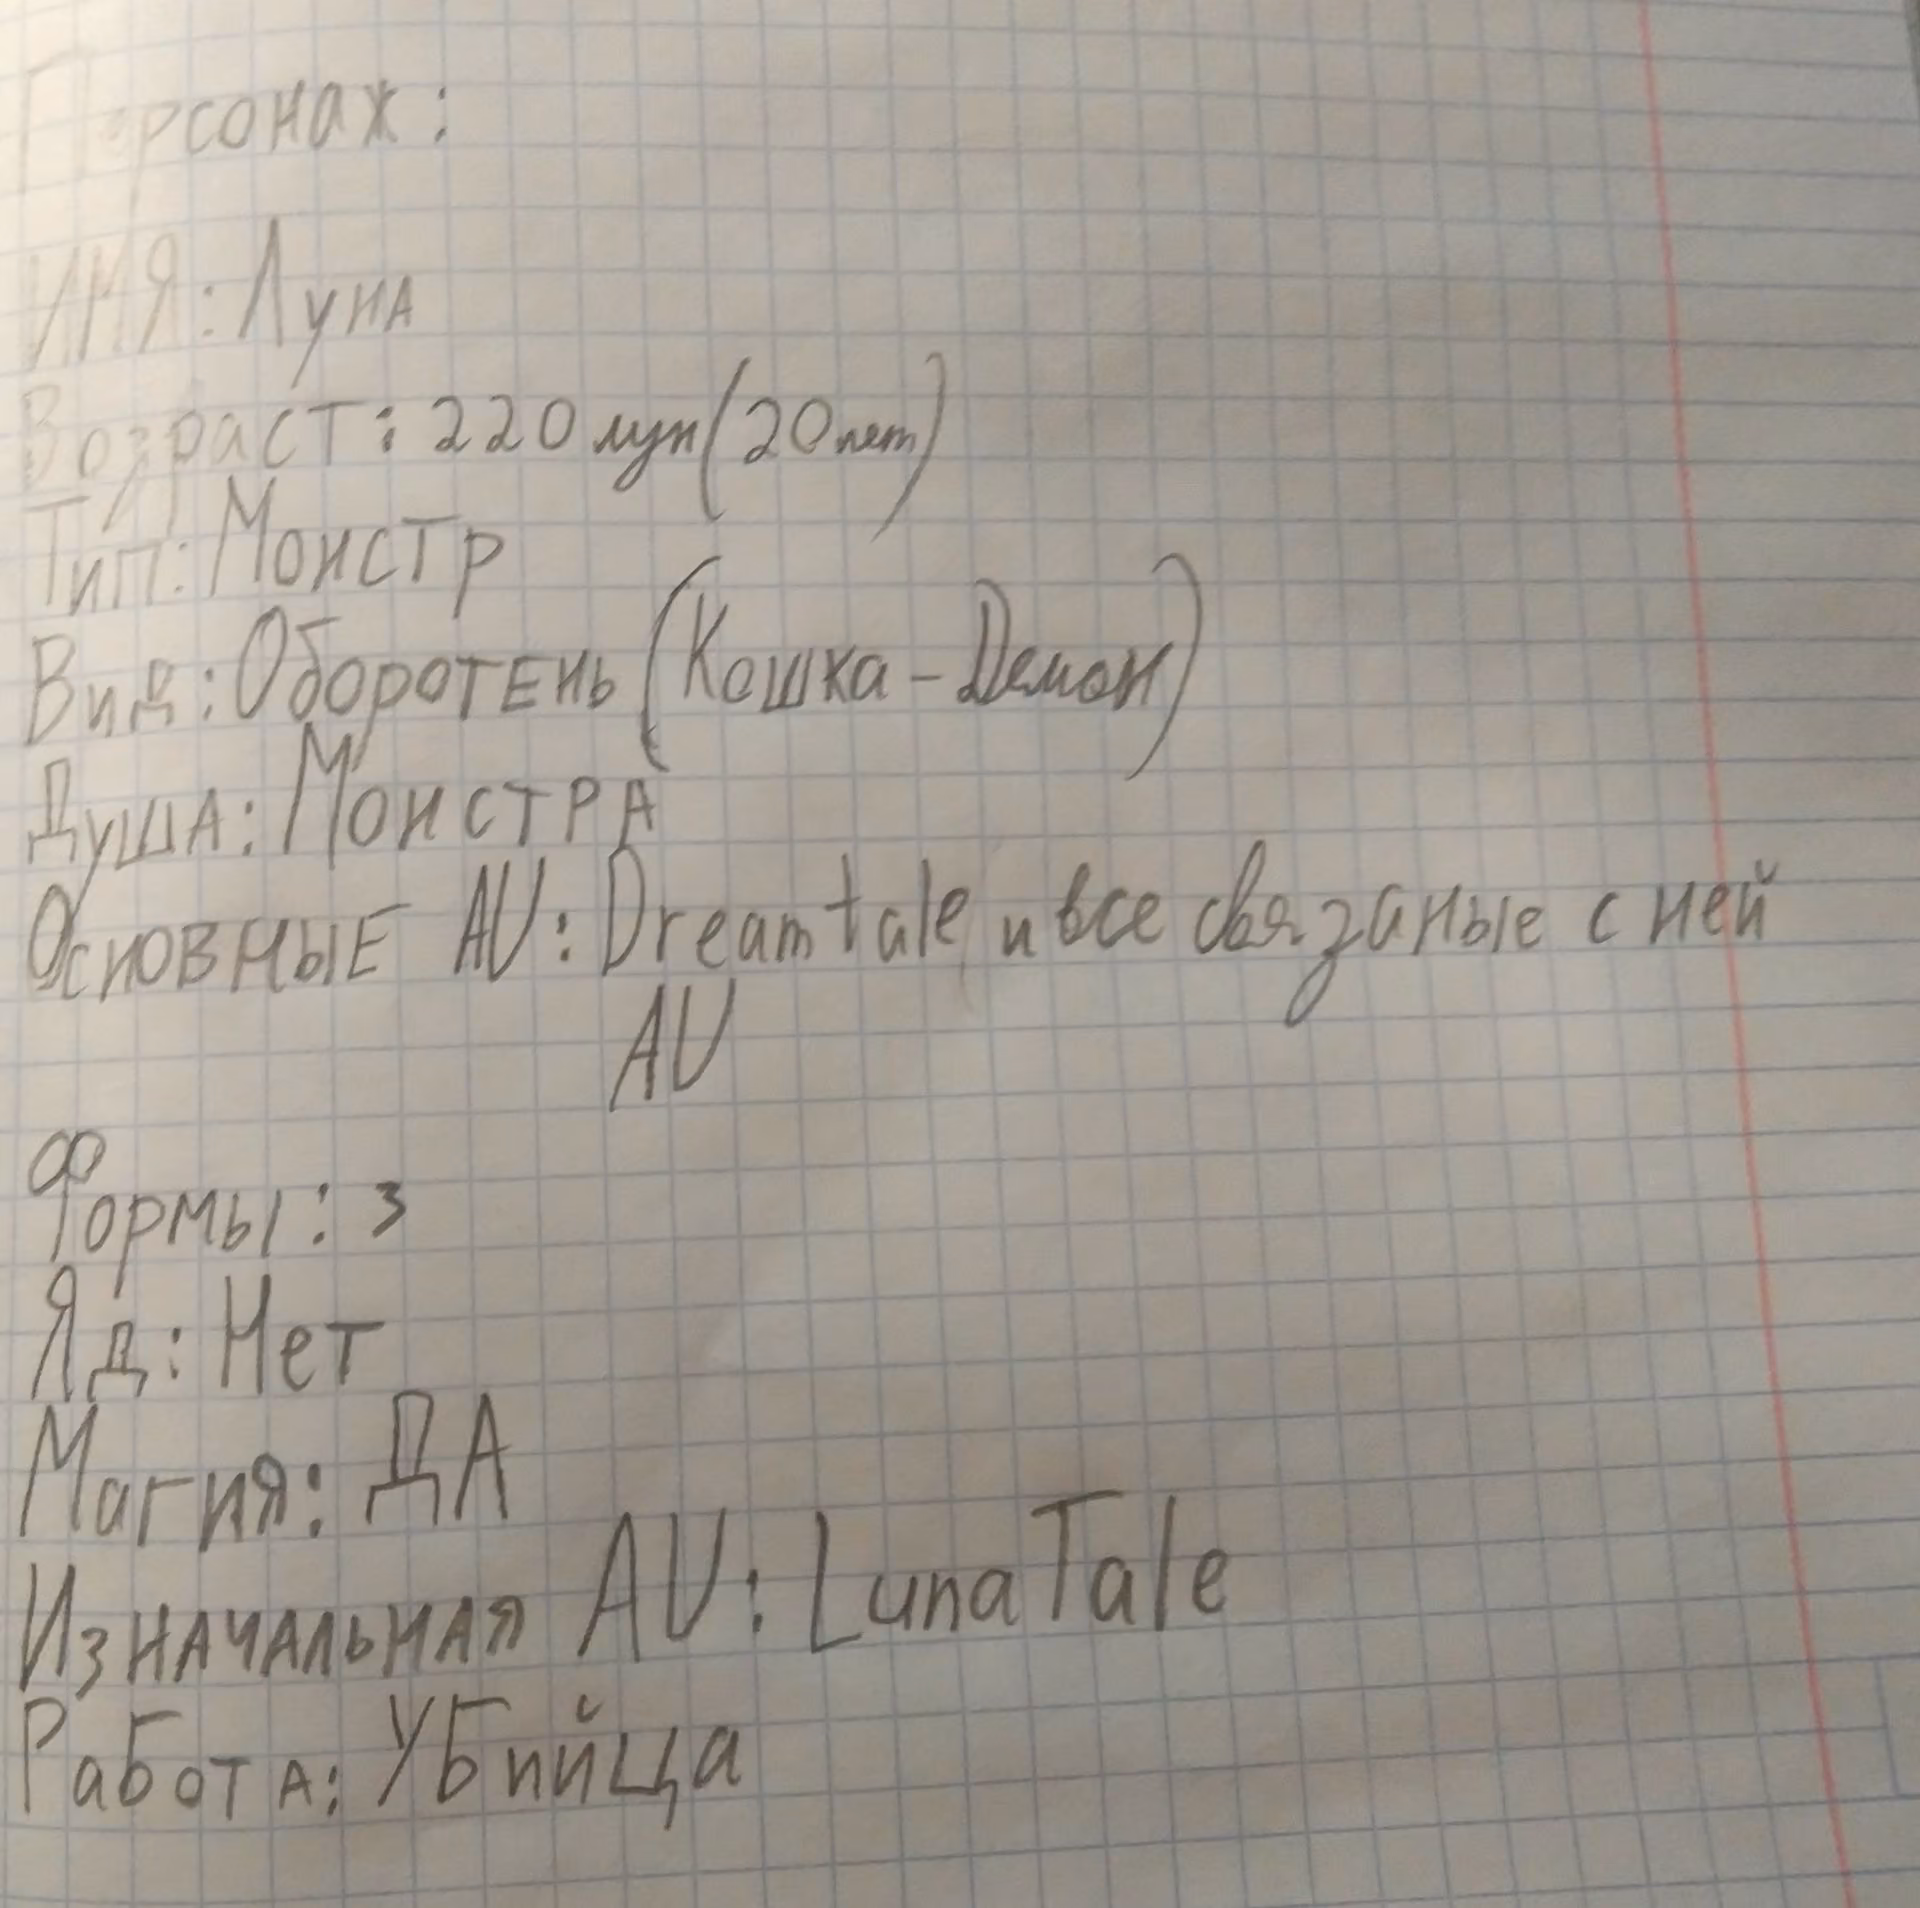 Персонаж:
ИМЯ: Луна
Возраст: 220 лун (20 лет)
Тип: Монстр
Вид: Оборотень (Кошка-Демон)
Душа: Монстра
Основные AU: Dreamtale и все связаные с ней
AU
Формы: 3
Яд: Нет
Магия: ДА
Изначальная AU: LunaTale
Работа: Убийца